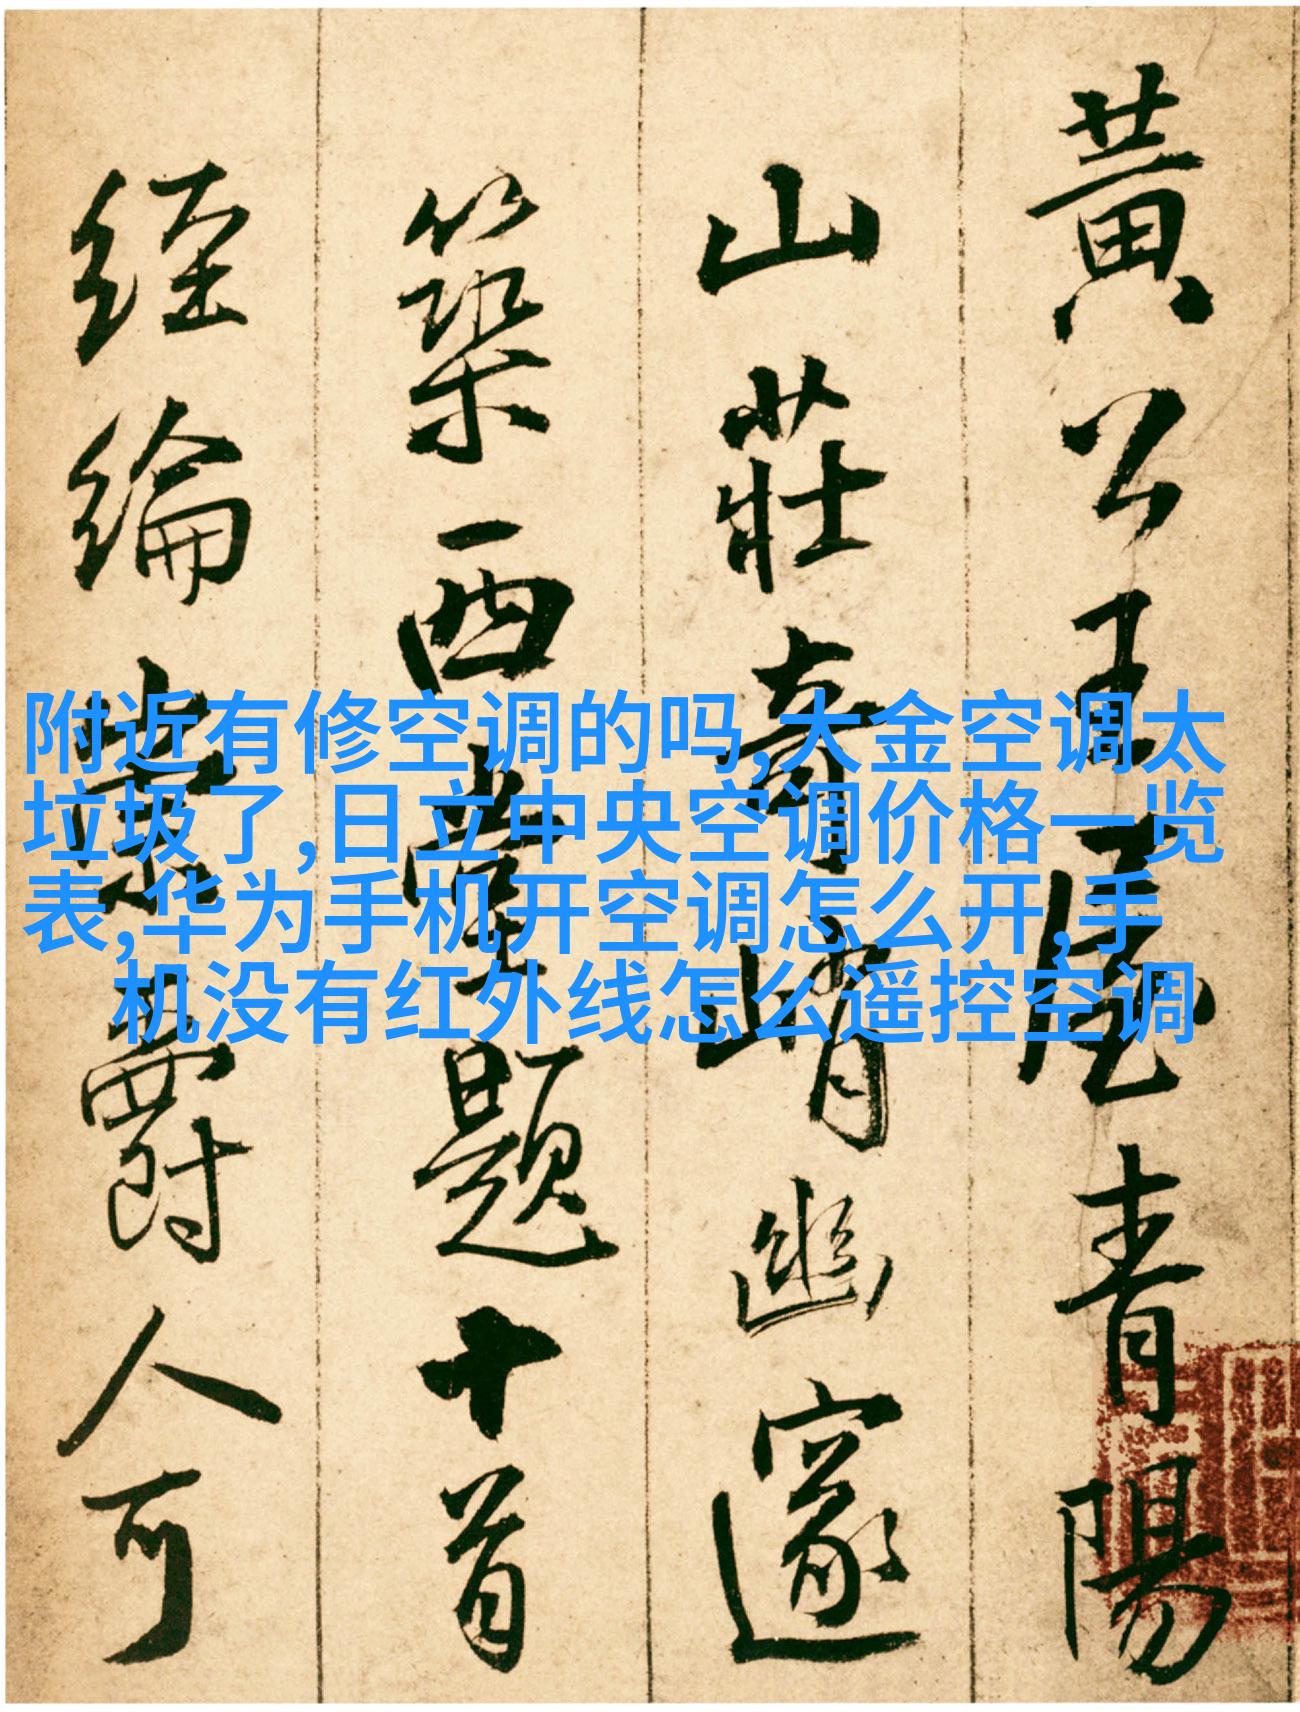 黄公王屋青陽
山莊奇峭幽邃
築西堂題十首
経綸素爵人可
附近有修空调的吗,大金空调太
垃圾了,日立中央空调价格一览
表,华为手机开空调怎么开,手
机没有红外线怎么遥控空调